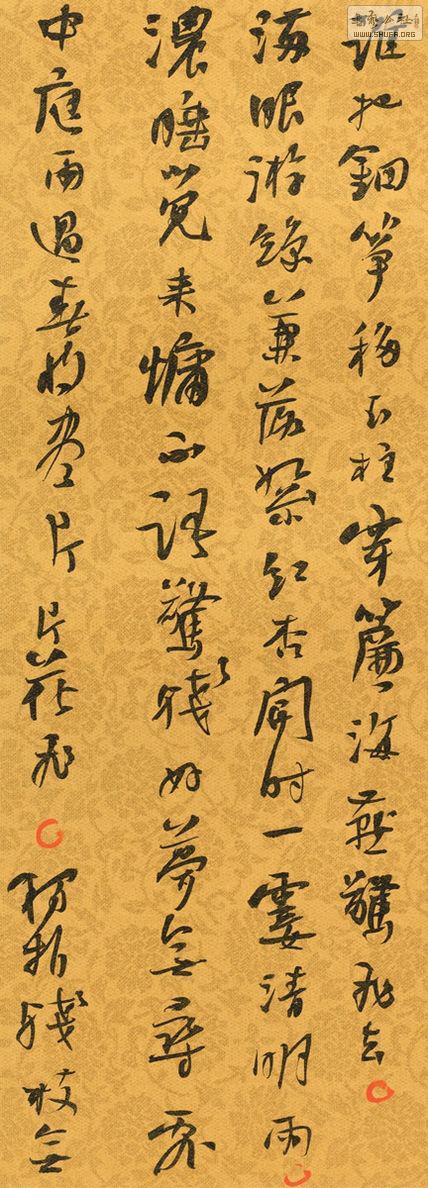 WWW.SHUFA.ORG
誰把鈿箏移玉柱穿簾海燕驚飛去
滿眼游絲兼落絮紅杏開時一霎清明雨
濃睡覺來慵不語驚殘好夢無尋處
中庭雨過春將盡片片花飛獨折殘枝無